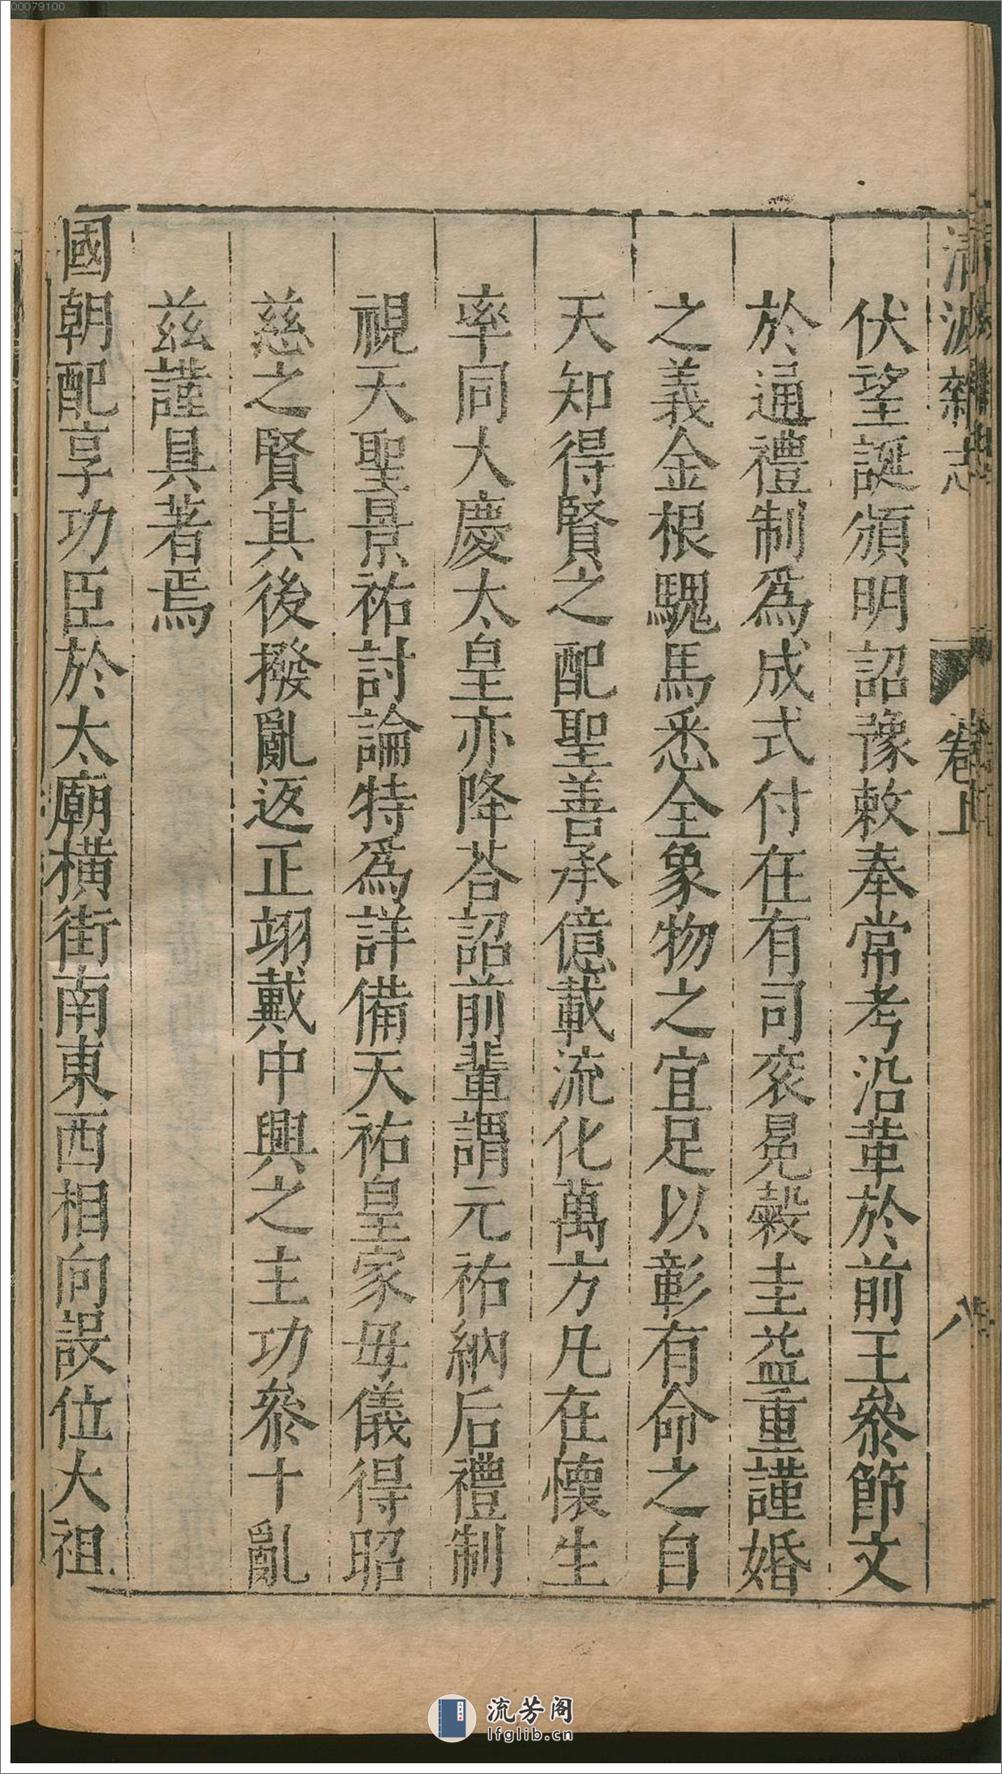 清波雜志 卷上 八
伏望誕頒明詔豫敕奉常考沿革於前王參節文
於通禮制爲成式付在有司衮冕穀圭益重謹婚
之義金根騩馬悉全象物之宜足以彰有命之自
天知得賢之配聖善承億載流化萬方凡在懷生
率同大慶太皇亦降荅詔前輩謂元祐納后禮制
視天聖景祐討論特爲詳備天祐皇家毋儀得昭
慈之賢其後撥亂返正翊戴中興之主功參十亂
茲謹具著焉
國朝配享功臣於太廟橫街南東西相向設位大祖
00079100
流芳阁
lfglib.cn